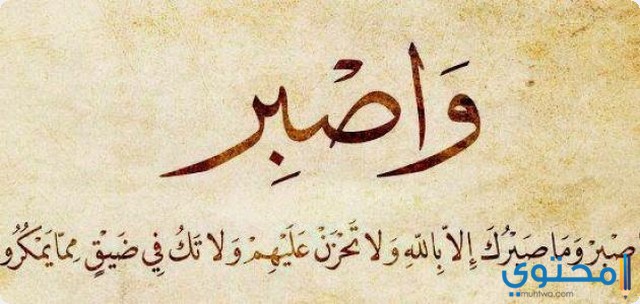 وَاصْبِر
اصْبِرْ وَمَا صَبْرُكَ إِلاَّ بِاللّهِ وَلاَ تَحْزَنْ عَلَيْهِمْ وَلاَ تَكُ فِي ضَيْقٍ مِمَّا يَمْكُرُو
محتوي
muhtwa.com